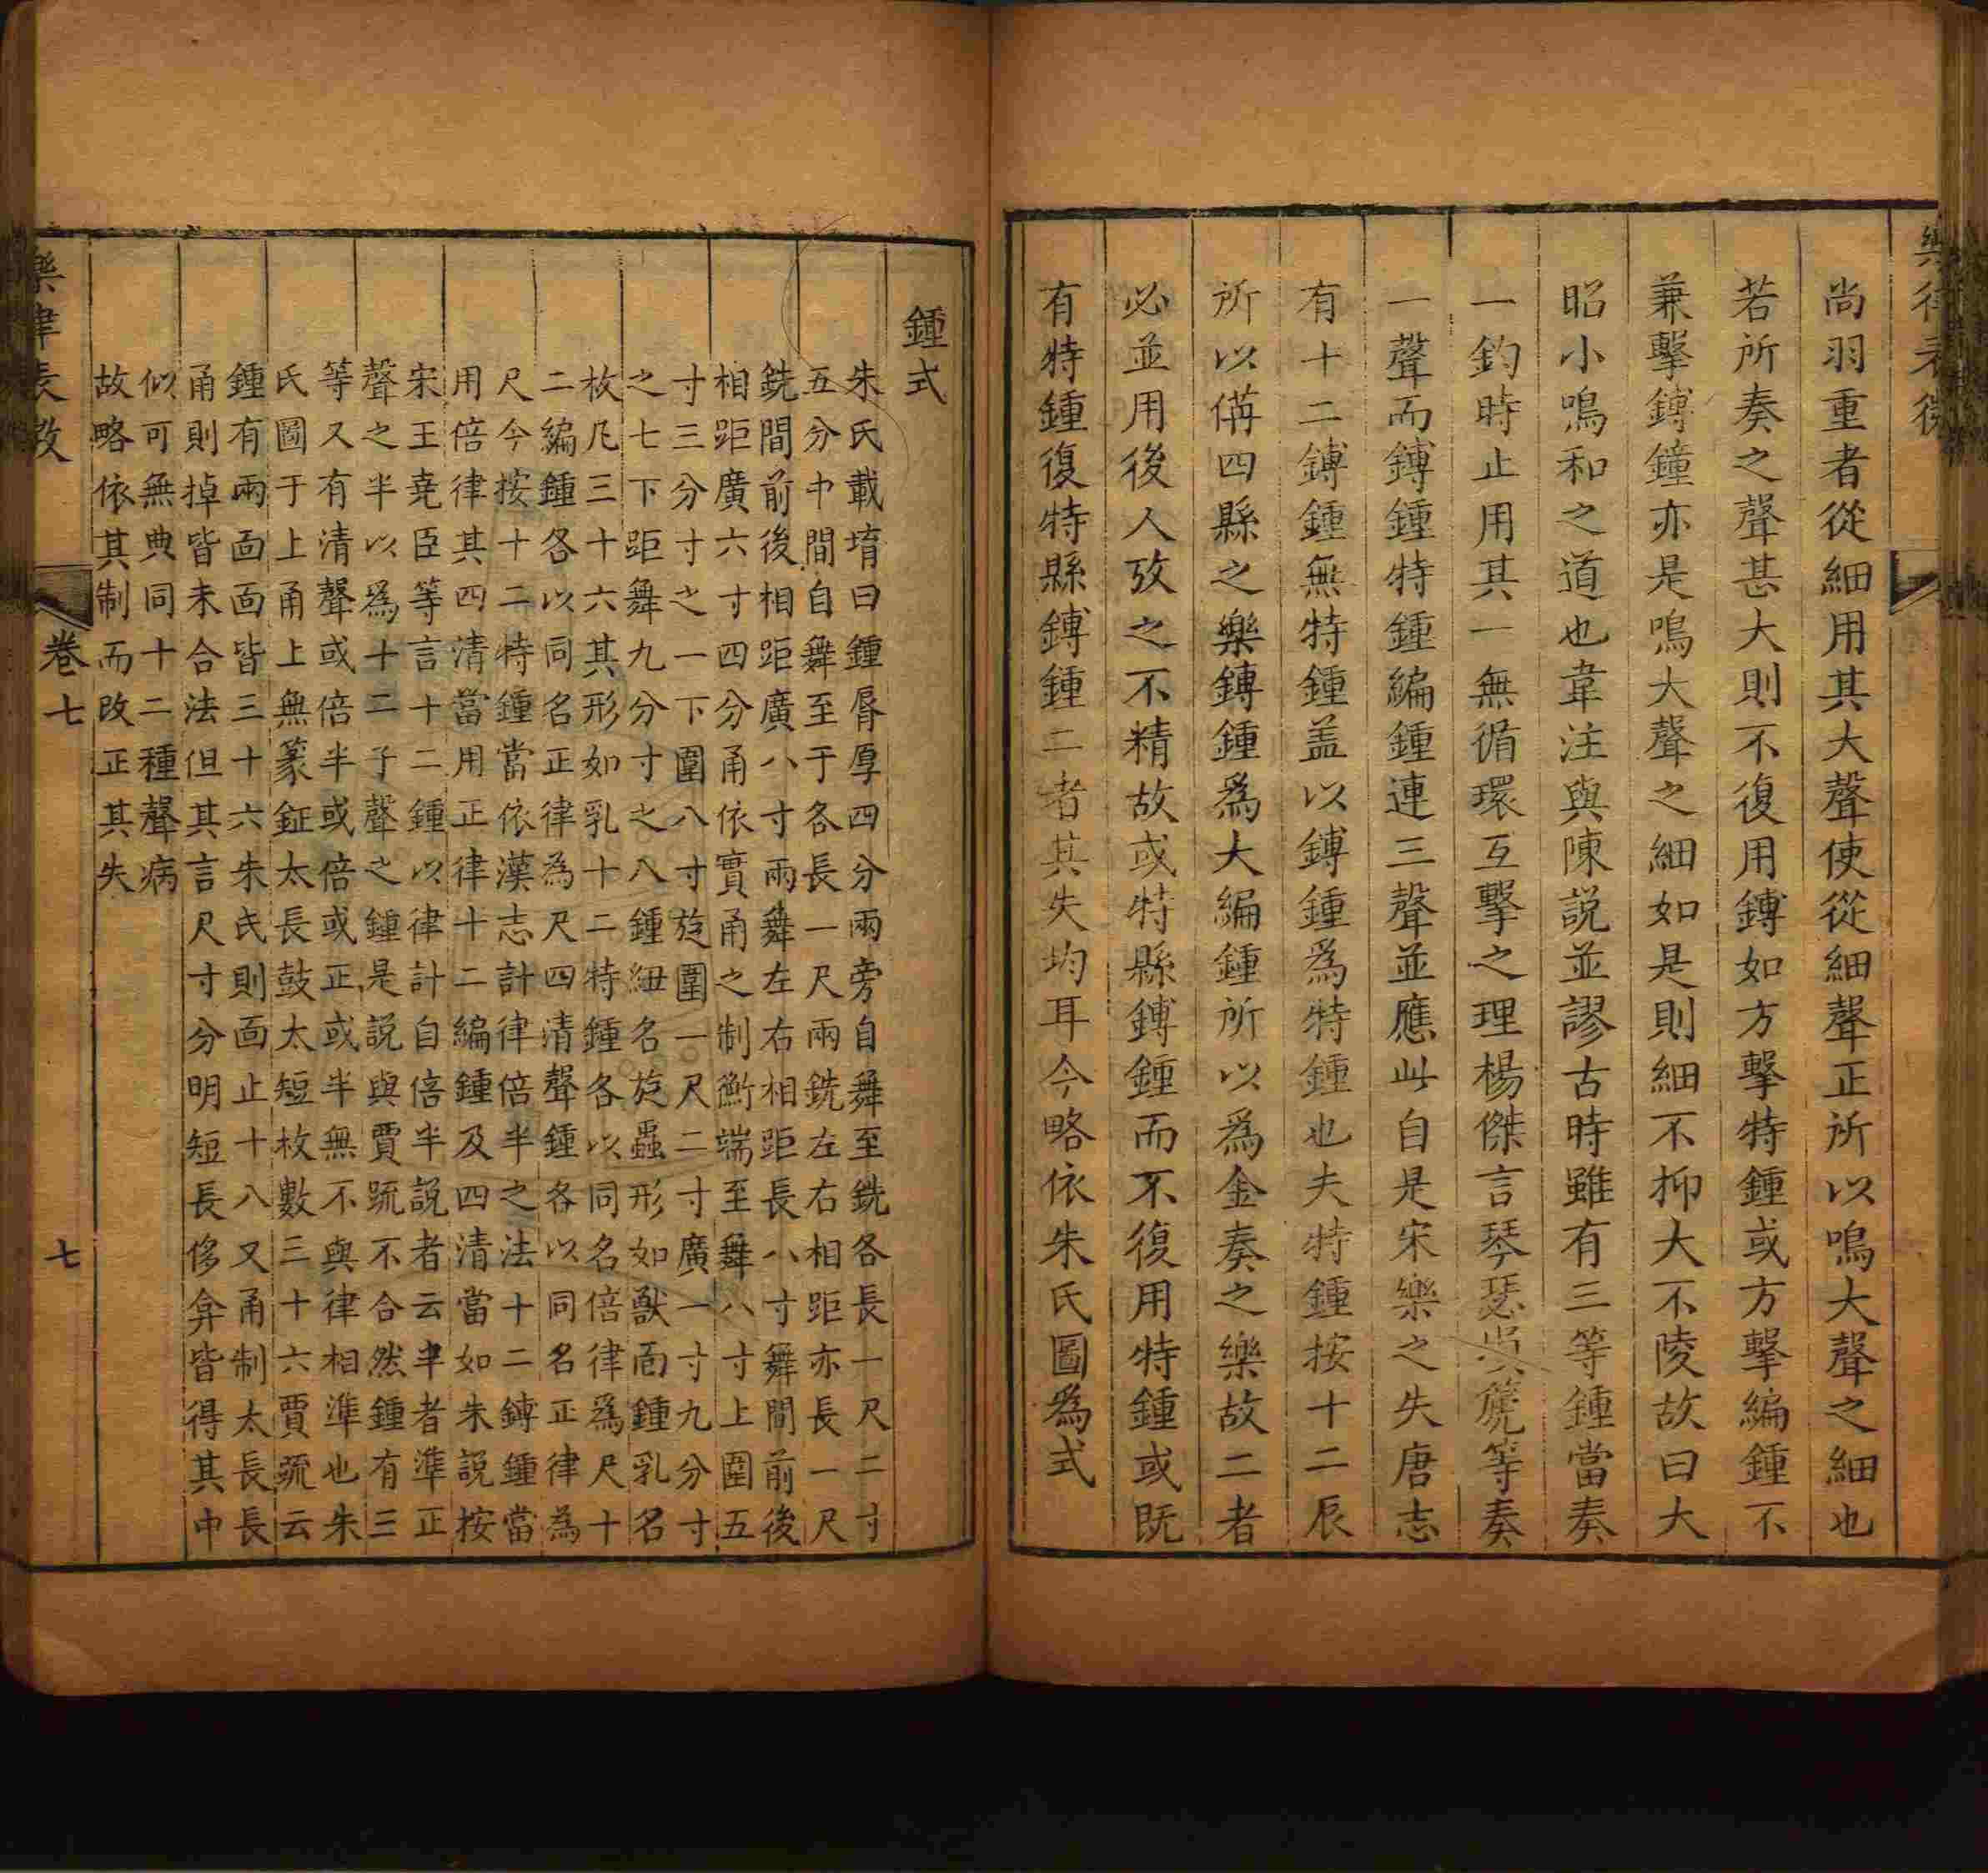 尚羽重者從細用其大聲使從細聲正所以鳴大聲之細也
若所奏之聲甚大則不復用鎛如方擊特鍾或方擊編鍾不
兼擊鎛鐘亦是鳴大聲之細如是則細不抑大不陵故曰大
昭小鳴和之道也韋注與陳説並謬古時雖有三等鍾當奏
一鈞時止用其一無循環互擊之理楊傑言琴瑟塤篪等奏
一聲而鎛鍾特鍾編鍾連三聲並應此自是宋樂之失唐志
有十二鎛鍾無特鍾盖以鎛鍾爲特鍾也夫特鍾按十二辰
所以備四縣之樂鎛鍾爲大編鍾所以爲金奏之樂故二者
必並用後人攷之不精故或特縣鎛鍾而不復用特鍾或旣
有特鍾復特縣鎛鍾二者其失均耳今略依朱氏圖爲式
鍾式
朱氏載堉曰鍾脣厚四分兩旁自舞至銑各長一尺二寸
五分中間自舞至于各長一尺兩銑左右相距亦長一尺
銑間前後相距廣八寸兩舞左右相距長八寸舞間前後
相距廣六寸四分甬依實甬之制衡端至舞八寸上圍五
寸三分寸之一下圍八寸旋圍一尺二寸廣一寸九分寸
之七下距舞九分寸之八鍾紐名旋蟲形如獸面鍾乳名
枚凡三十六其形如乳十二特鍾各以同名倍律爲尺十
二編鍾各以同名正律為尺四清聲鍾各以同名正律為
尺今按十二特鍾當依漢志計律倍半之法十二鎛鍾當
用倍律其四清當用正律十二編鍾及四清當如朱説按
宋王堯臣等言十二鍾以律計自倍半説者云半者準正
聲之半以爲十二子聲之鍾是説與賈䟽不合然鍾有三
等又有清聲或倍半或倍或正或半無不與律相準也朱
氏圖于上甬上無篆鉦太長鼓太短枚數三十六賈䟽云
鍾有兩面面皆三十六朱氏則面止十八又甬制太長長
甬則掉皆未合法但其言尺寸分明短長侈弇皆得其中
似可無典同十二種聲病
故略依其制而改正其失
卷七
七